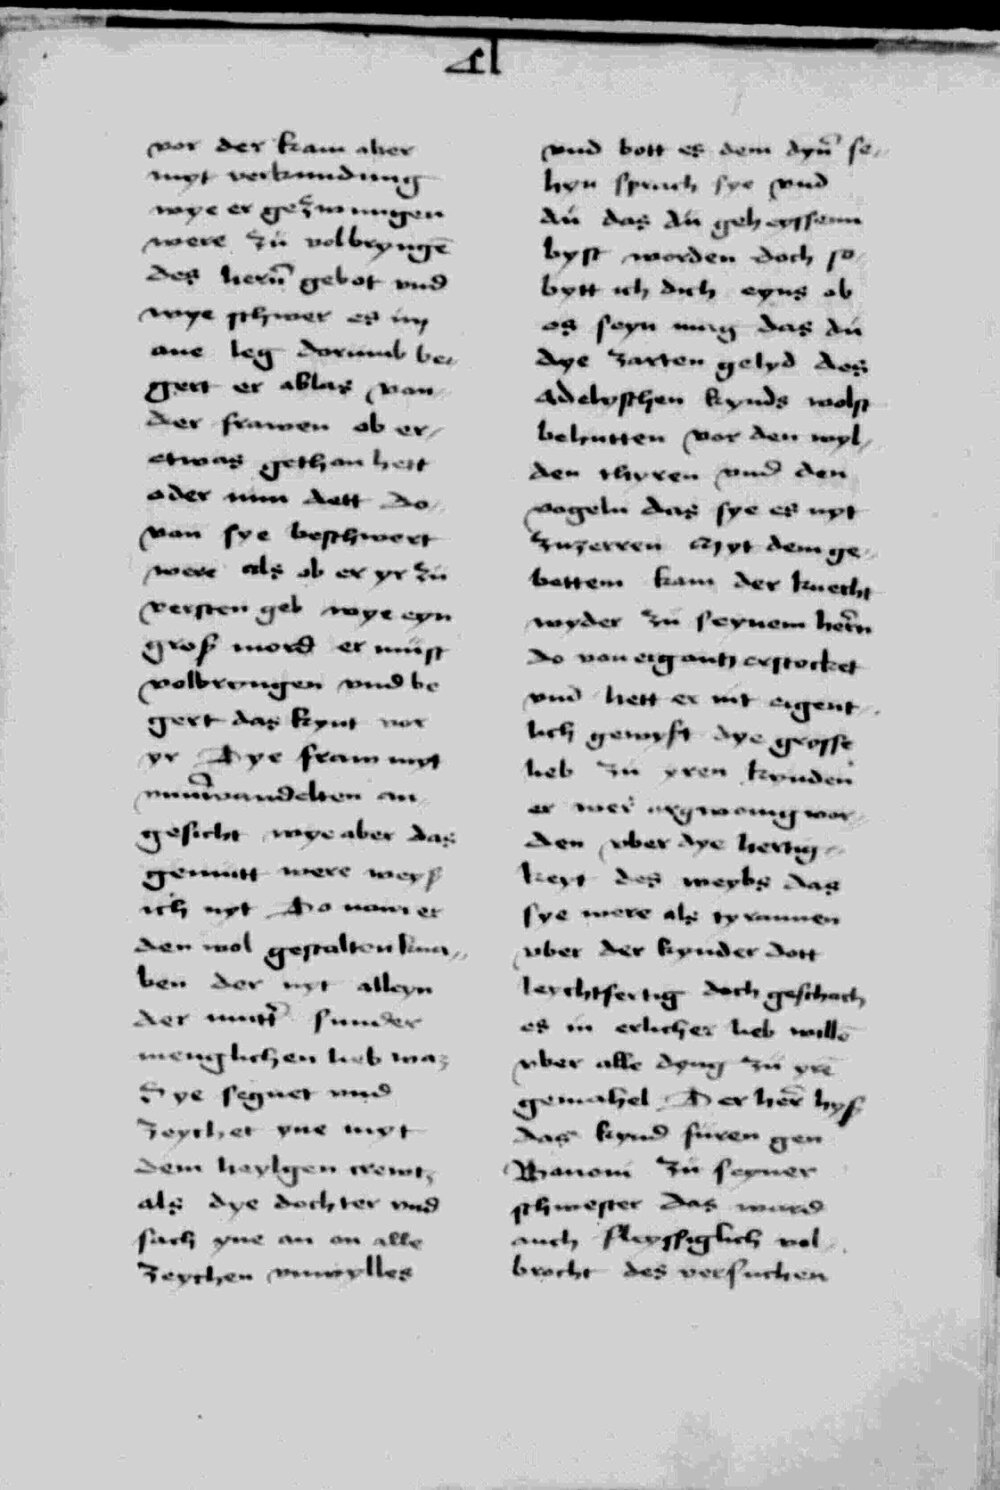 41
vor der kam aber
myt verkundung
wye er gezwungen
were zü volbryngē
des herñ gebot vnd
wye schwer es im
ane leg dorumb be-
gert er ablas von
der frawen ob er
etwas gethan hett
oder nun dett do
von sye beschwert
were als ob er yr zü
versten geb wye eyn
groß mord er müst
volbryngen vnd be
gert das kynt vor
yr Dye fraw myt
vnuerwandelten an
gesicht wye aber das
gemütt were weyß
ich nyt Do nam er
den wol gestalten kna-
ben der nyt alleyn
der mutter sunder
menglichen lieb waz
Sye segnet vnd
zeychet yne myt
dem heylgen crewtz
als dye dochter vnd
sach yne an on alle
zeychen vnwylles
vnd bott es dem dyñ se-
hyn sprach sye vnd
dü das dü geheyssenn
byst worden doch so
bytt ich dich eyns ob
es seyn mag das dü
dye zarten gelyd des
adelyschen kynds wolst
behutten vor den wyl-
den thyren vnd den
vogeln das sye es nyt
zuzerren Myt dem ge-
bettem kam der knecht
wyder zü seynem herñ
do von er gantz erstocket
vnd hett er nit eigent-
lich gewyst dye grosse
lieb zü yren kynden
er wer argwonig wor-
den vber dye hertig-
keyt des weybs das
sye were als tyrannen
vber der kynder dott
leychtfertig doch geschach
es in erlicher lieb willē
vber alle dyng zü yrē
gemahel Der her hyß
das kynd füren gen
Banoni zü seyner
schwester das ward
auch fleyssiglich vol-
brocht des versuchen